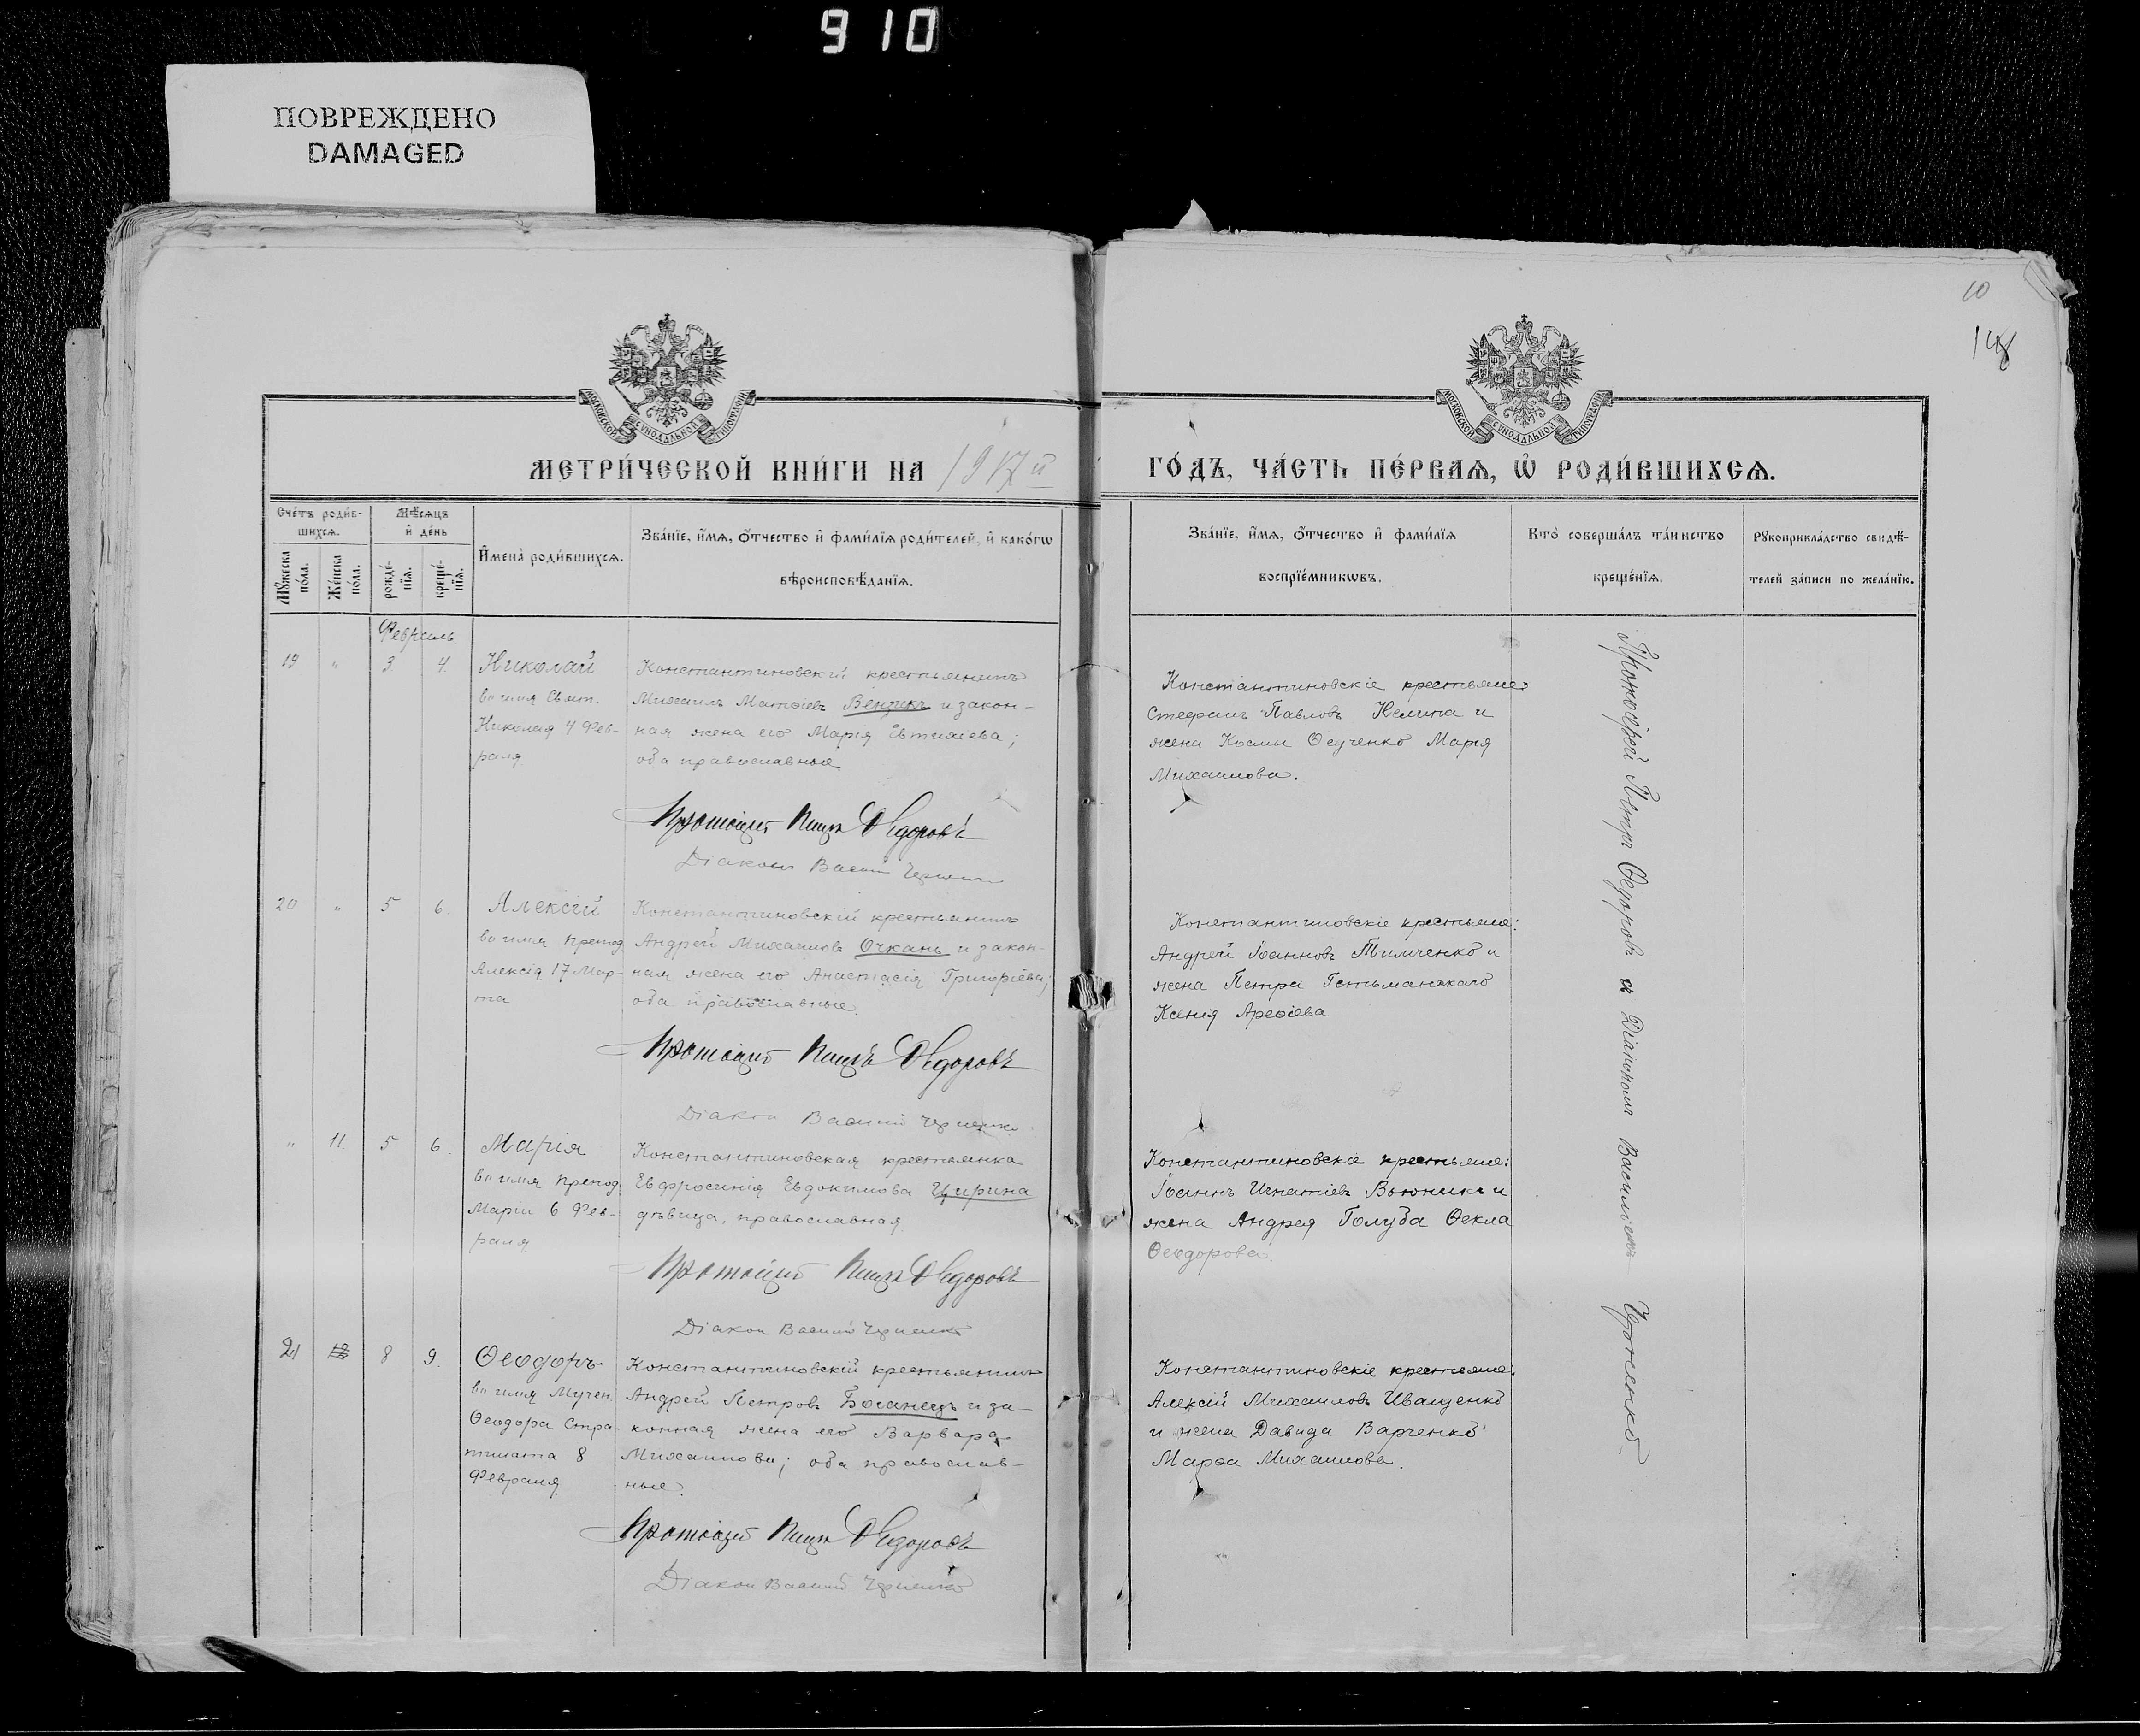 910
ПОВРЕЖДЕНО
DAMAGED
10
148
МОСКОВСКОЙ СѴНОДАЛЬНОЙ ТИПОГРАФІИ
МОСКОВСКОЙ СѴНОДАЛЬНОЙ ТИПОГРАФІИ
МЕТРИ́ЧЕСКОЙ КНИ́ГИ НА 1917й
ГО́ДЪ, ЧА́СТЬ ПЕ́РВАѦ, Ѡ РОДИ́ВШИХСѦ.
Счетъ роди́в-
шихсѧ.
Мѣ́сѧцъ
и҆ де́нь
Мꙋ́жеска по́ла.
Же́нска по́ла.
рожде́-нїѧ.
креще́-нїѧ.
И҆мена̀ роди́вшихсѧ.
Зва́нїе, и҆́мѧ, ѻ҆́тчество и҆ фами́лїѧ роди́телей, и҆ како́гѡ
вѣроисповѣ́данїѧ.
Зва́нїе, и҆́мѧ, ѻ҆́тчество и҆ фами́лїѧ
воспрїе́мникѡвъ.
Кто̀ соверша́лъ та́инство
креще́нїѧ.
Рꙋкоприкла́дство свидѣ́-
телей за́писи по жела́нїю.
Февраль
19 " 3. 4.
Николай
во имя Свят.
Николая 4 Фев-
раля
Константиновскій крестьянинъ
Михаилъ Матѳіевъ Венжикъ и закон-
ная жена его Марія Евтихіева;
оба православные
Протоіерей Петръ Ѳедоровъ
Діаконъ Василій Черненко
Константиновскіе крестьяне:
Стефанъ Павловъ Келипа и
жена Космы Ѳедченко Марія
Михаилова.
20 " 5 6.
Алексій
во имя препод.
Алексія 17 Мар-
та
Константиновскій крестьянинъ
Андрей Михаиловъ Очкань и закон-
ная жена его Анастасія Григоріева;
оба православные.
Протоіерей Петръ Ѳедоровъ
Діаконъ Василій Черненко
Константиновскіе крестьяне:
Андрей Іоанновъ Тимченко и
жена Петра Гетьманскаго
Ксенія Ареѳіева
" 11. 5 6.
Марія
во имя препод.
Маріи 6 Фев-
раля
Константиновская крестьянка
Евфросинія Евдокимова Цирина
дѣвица, православная
Протоіерей Петръ Ѳедоровъ
Діаконъ Василій Черненко
Константиновскіе крестьяне:
Іоаннъ Игнатіевъ Вьюникъ и
жена Андрея Голуба Ѳекла
Ѳеодорова.
21 12 8 9.
Ѳеодоръ
во имя Мучен.
Ѳеодора Стра-
тилата 8
Февраля
Константиновскій крестьянинъ
Андрей Петровъ Боганецъ и за-
конная жена его Варвара
Михаилова; оба православ-
ные.
Протоіерей Петръ Ѳедоровъ
Діаконъ Василій Черненко
Константиновскіе крестьяне:
Алексій Михаиловъ Иващенко
и жена Давида Варченко
Марѳа Михаилова.
Протоіерей Петръ Ѳедоровъ съ Діакономъ Василіемъ Черненко.